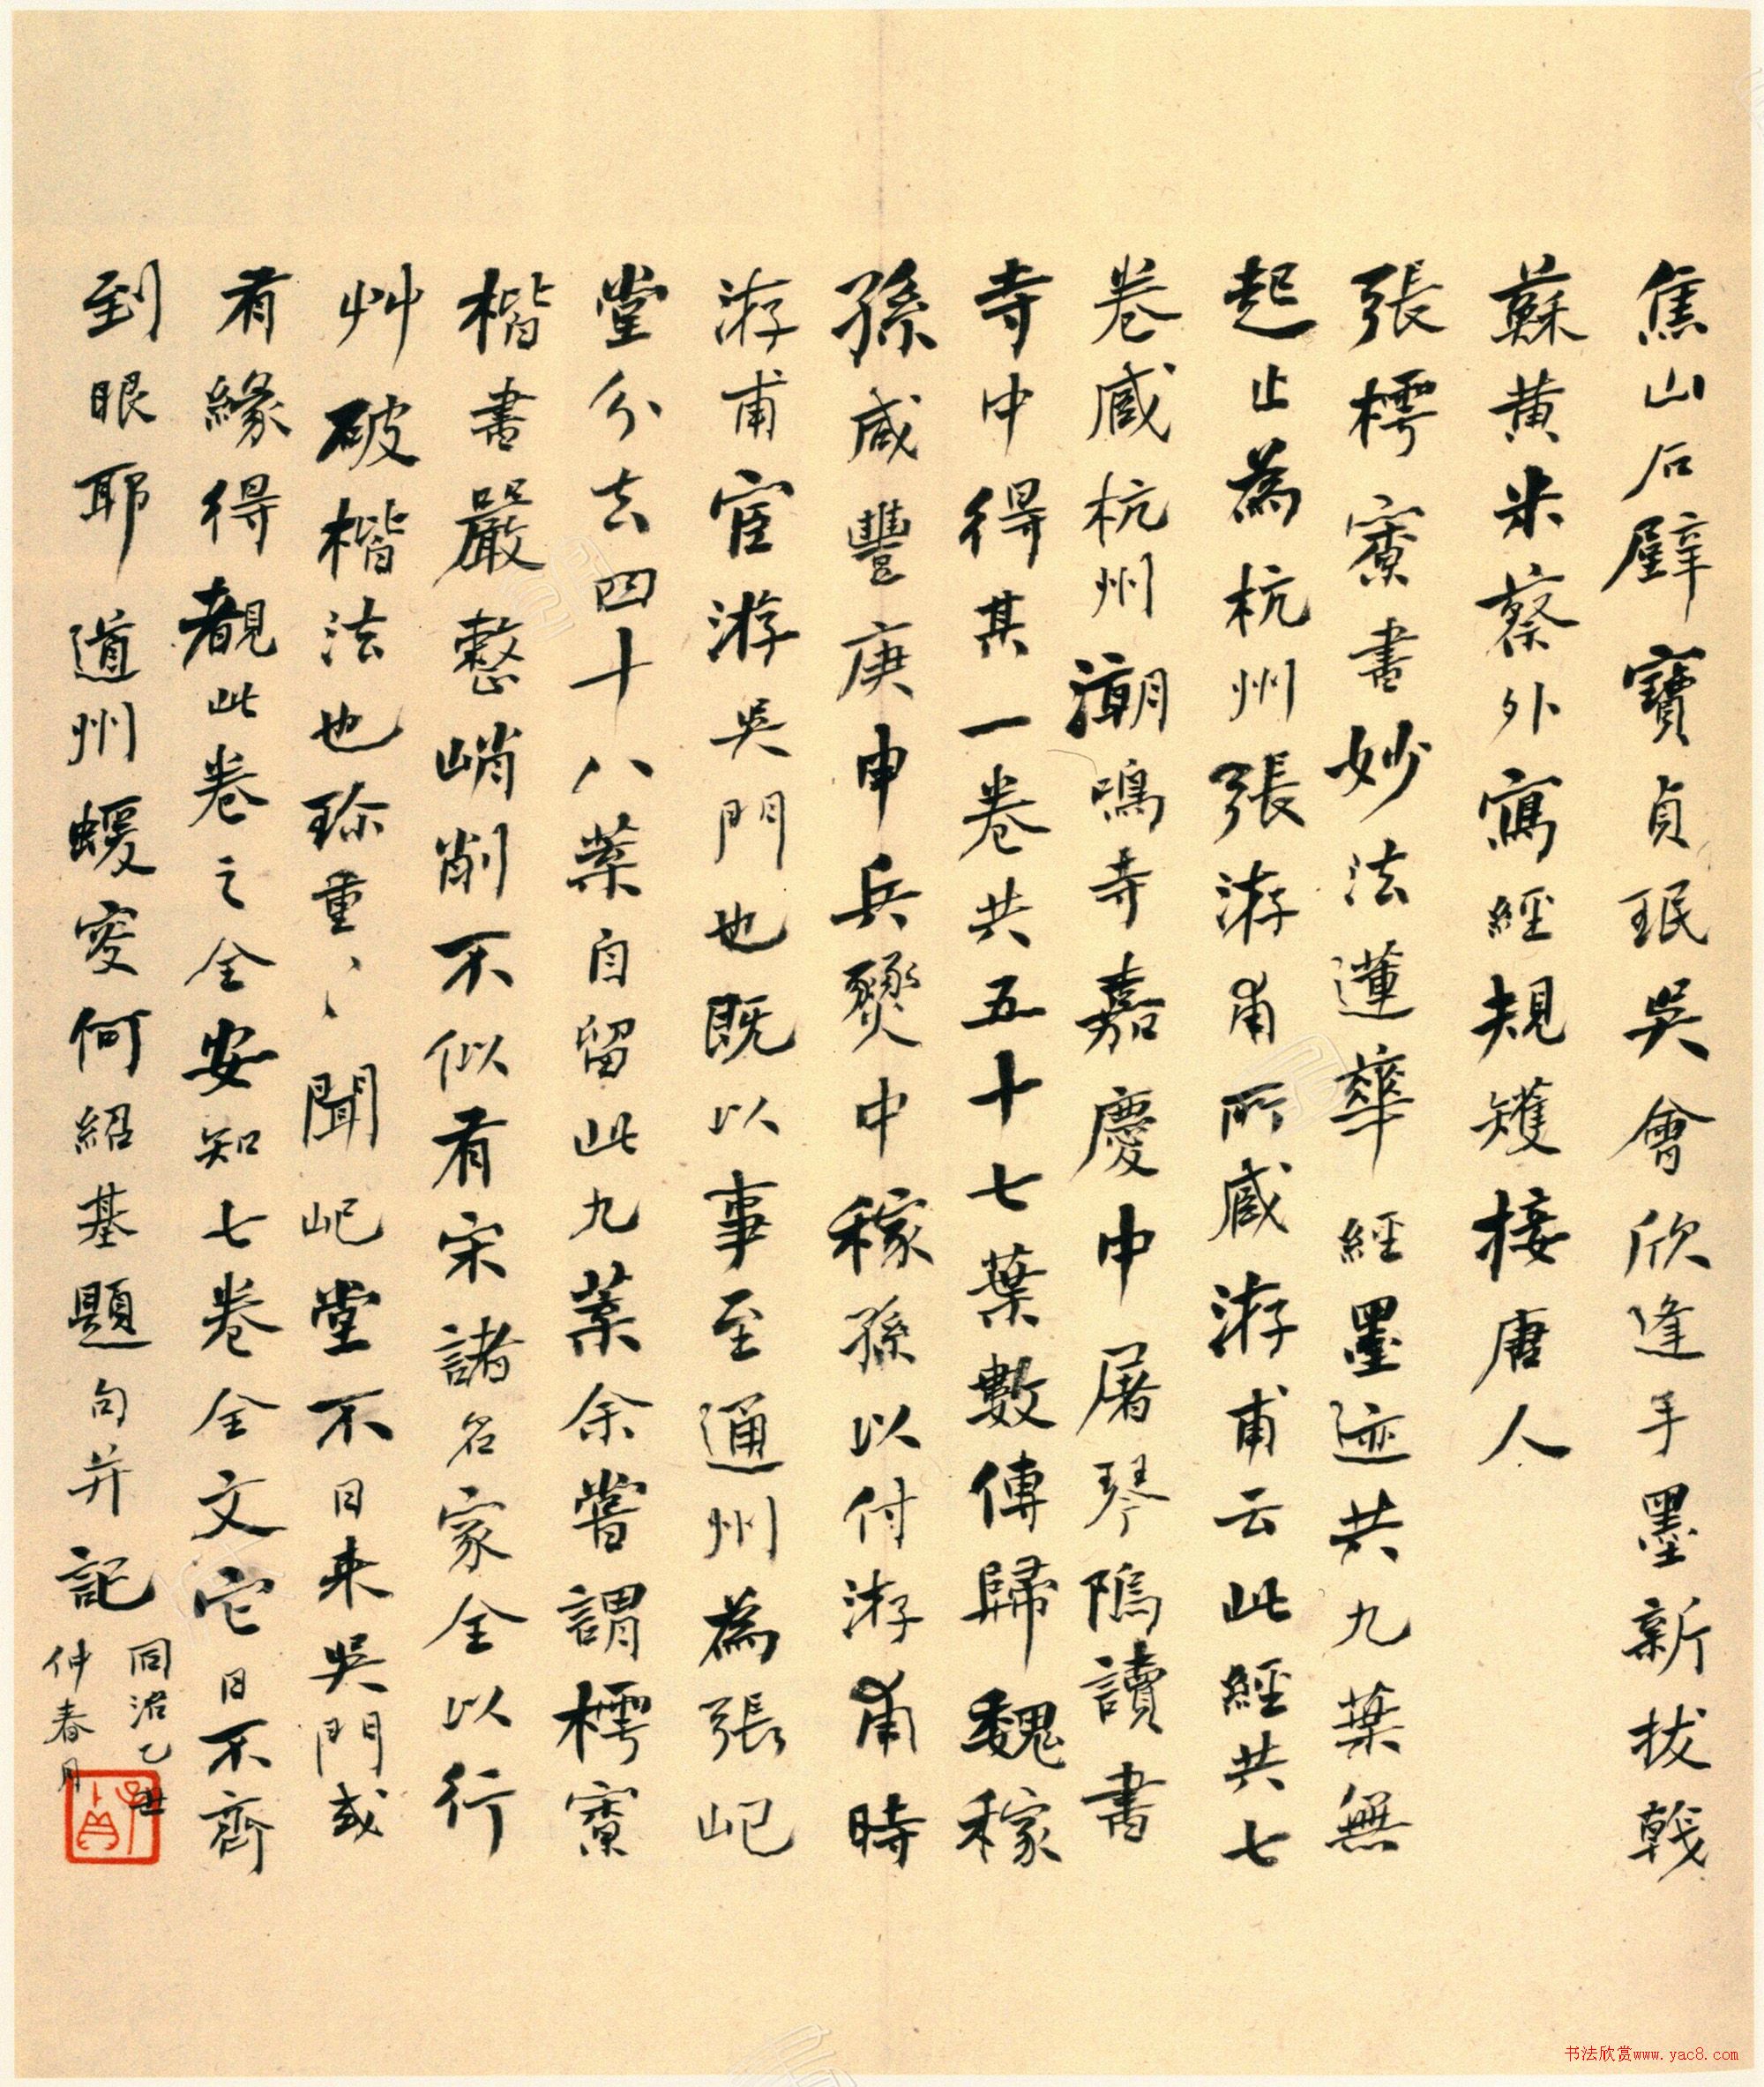 焦山石壁寶貞珉吳會欣逢手墨新拔戟
蘇黃米蔡外寫經規矱接唐人
張樗寮書妙法蓮華經墨迹共九葉無
起止為杭州張游甫所藏游甫云此經共七
卷藏杭州潮鳴寺嘉慶中屠琴隝讀書
寺中得其一卷共五十七葉數傳歸魏稼
孫咸豐庚申兵燹中稼孫以付游甫時
游甫宦游吳門也既以事至通州為張屺
堂分去四十八葉自留此九葉余嘗謂樗寮
楷書嚴整峭削不似有宋諸名家全以行
艸破楷法也珍重〻聞屺堂不日來吳門或
有緣得覩此卷之全安知七卷全文它日不齊
到眼耶 道州蝯叟何紹基題句并記
同治乙丑
仲春月
书法欣赏www.yac8.com